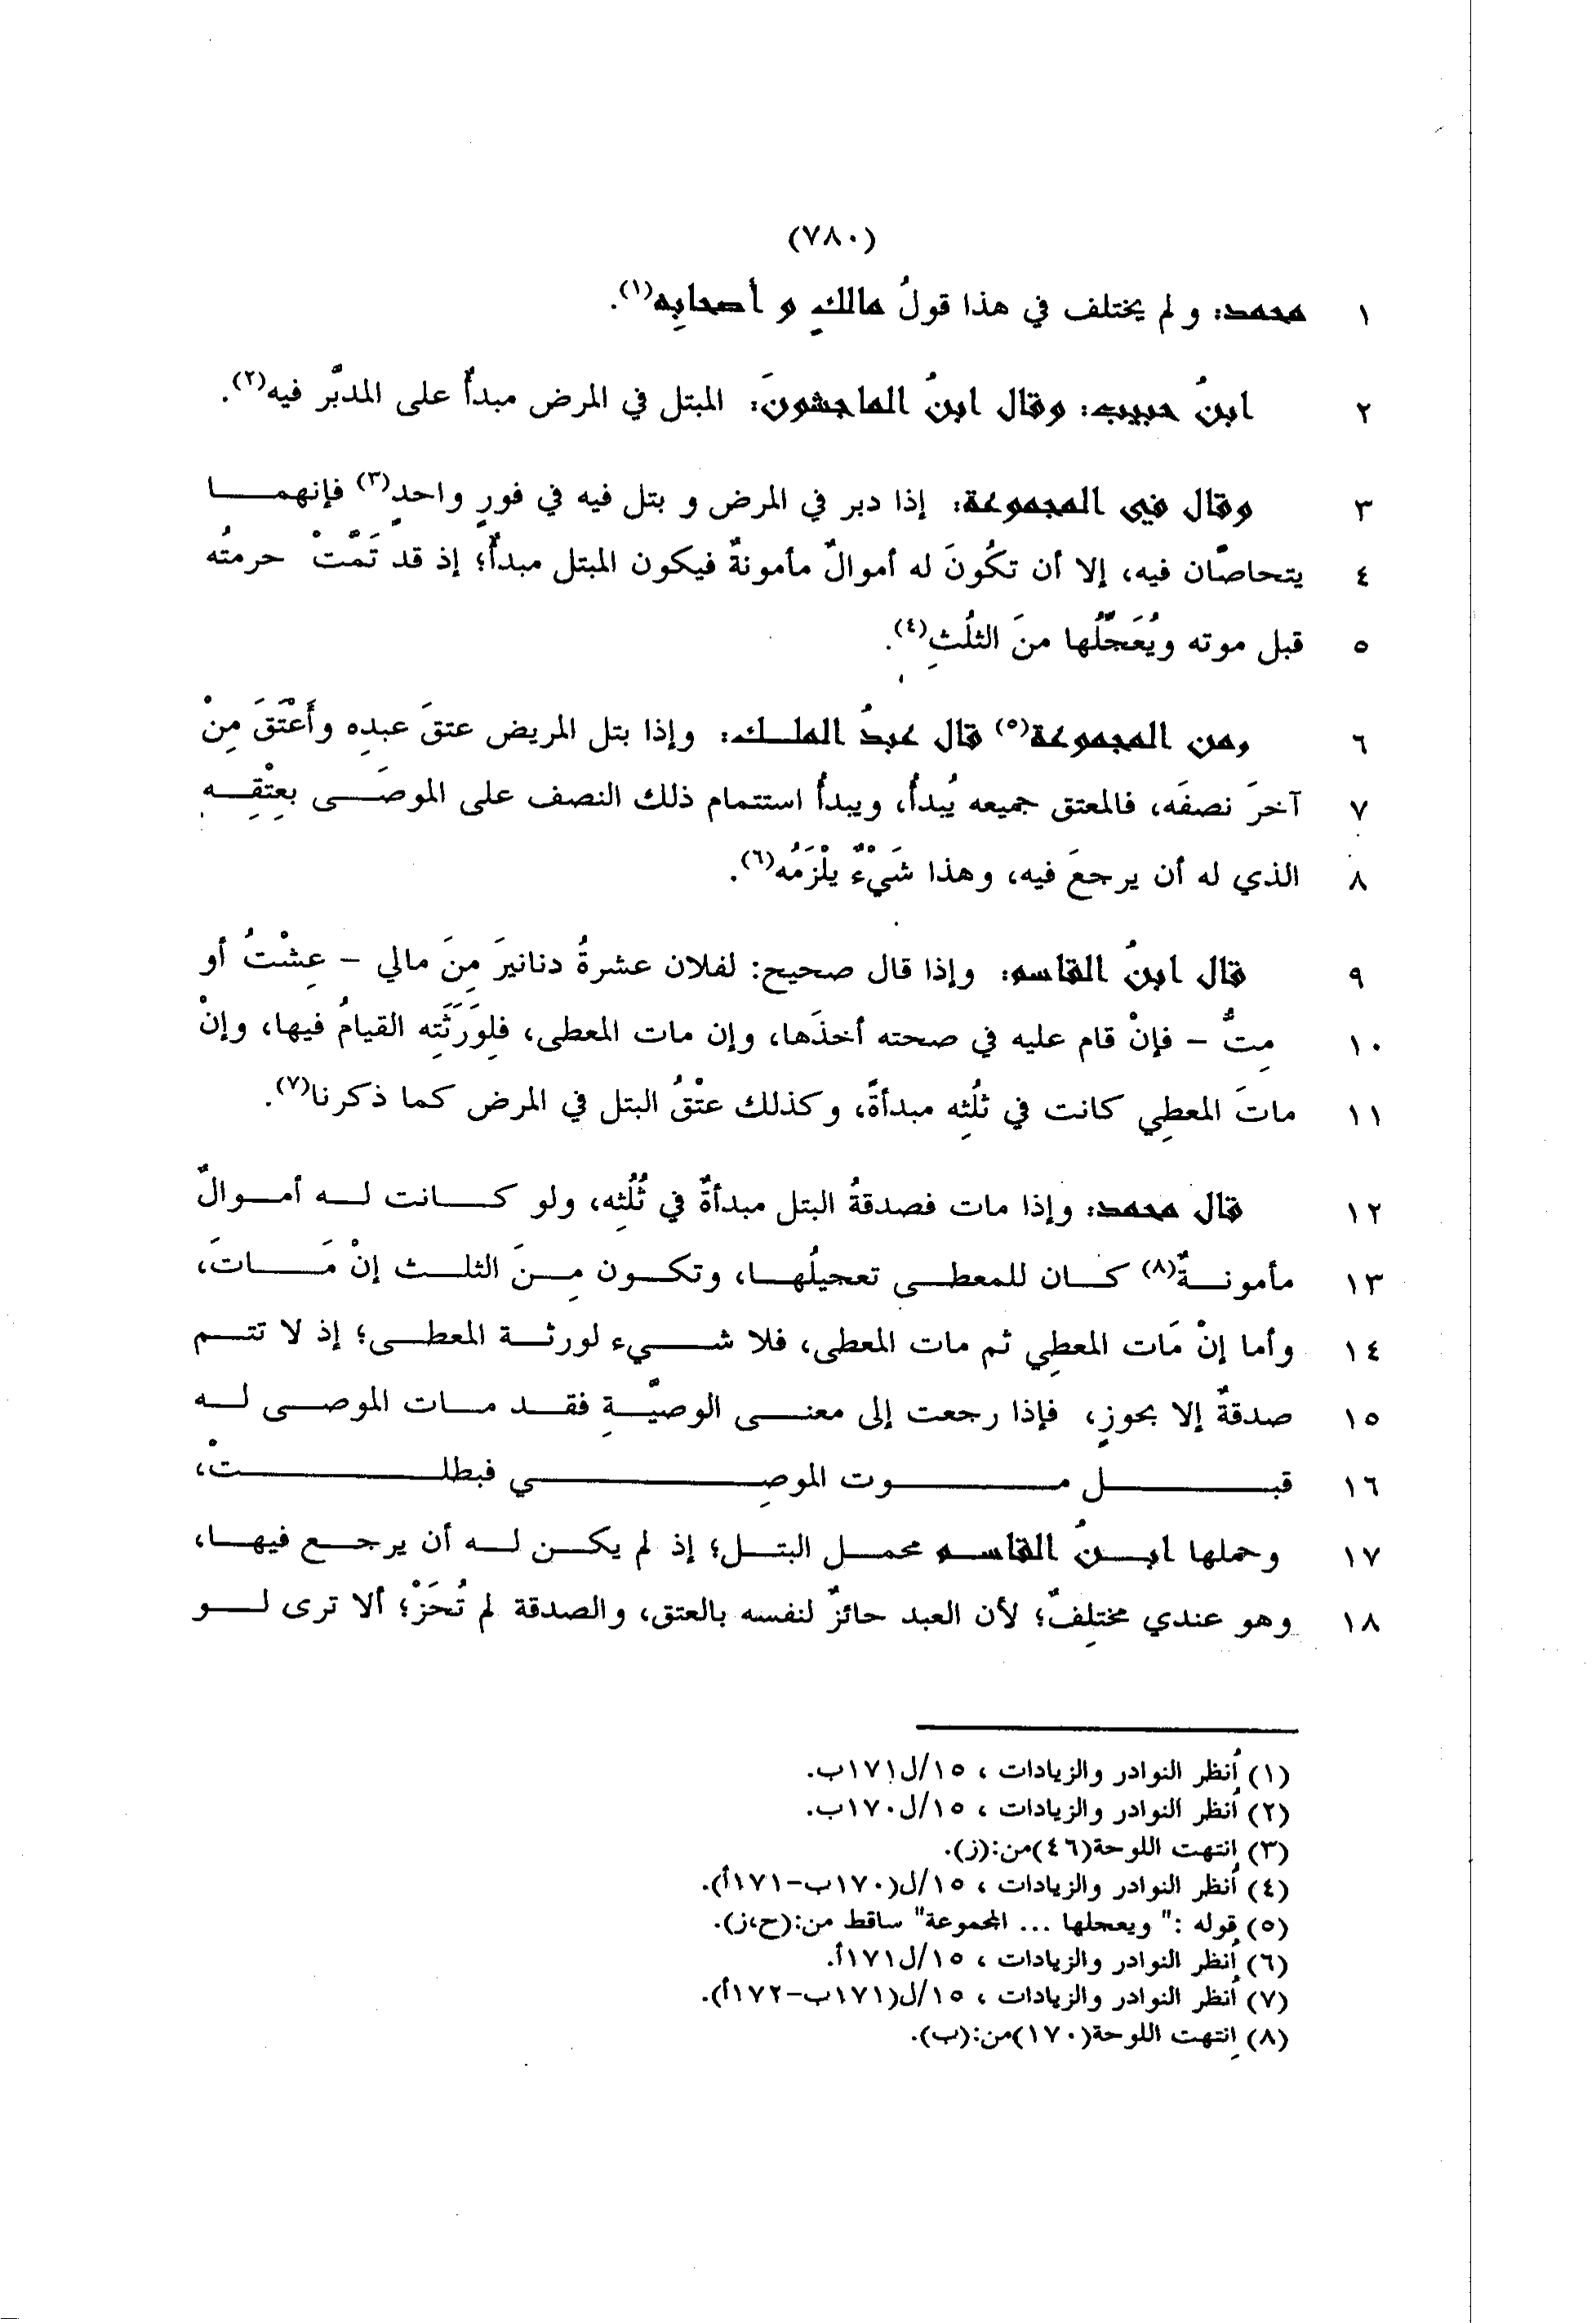 (٧٨٠)
١ محمد: و لم يختلف في هذا قولُ مالكٍ و أصحابِه(١).
٢ ابنُ حبيب: وقال ابنُ الماجشونَ: المبتل في المرض مبدأٌ على المدبَّر فيه(٢).
٣ وقال في المجموعة: إذا دبر في المرض و بتل فيه في فورٍ واحدٍ(٣) فإنهمـــا
٤ يتحاصَّان فيه، إلا أن تكُونَ له أموالٌ مأمونةٌ فيكون المبتل مبدأٌ؛ إذ قد تَمَّتْ حرمتُه
٥ قبل موته ويُعَجِّلُها منَ الثلُثِ(٤).
٦ ومن المجموعة(٥) قال عبدُ الملــك: وإذا بتل المريض عتقَ عبدِه وأَعْتَقَ مِنْ
٧ آخرَ نصفَه، فالمعتق جميعه يُبدأُ، ويبدأُ استتمام ذلك النصف على الموصَــى بعِتْقِــه
٨ الذي له أن يرجعَ فيه، وهذا شَيْءٌ يلْزَمُه(٦).
٩ قال ابنُ القاسم: وإذا قال صحيح: لفلان عشرةُ دنانيرَ مِنَ مالي – عِشْتُ أو
١٠ مِتُّ – فإنْ قام عليه في صحته أخذَها، وإن مات المعطى، فلِوَرَثَتِه القيامُ فيها، وإنْ
١١ ماتَ المعطِي كانت في ثلُثِه مبدأةً، وكذلك عتْقُ البتل في المرض كما ذكرنا(٧).
١٢ قال محمد: وإذا مات فصدقةُ البتل مبدأةٌ في ثُلُثِه، ولو كـــانت لـــه أمـــوالٌ
١٣ مأمونـــةٌ(٨) كـــان للمعطـــى تعجيلُهـــا، وتكـــون مِـــنَ الثلـــث إنْ مَـــاتَ،
١٤ وأما إنْ مَات المعطِي ثم مات المعطى، فلا شـــيء لورثـــة المعطـــى؛ إذ لا تتـــم
١٥ صدقةٌ إلا بحوزٍ، فإذا رجعت إلى معنـــى الوصيَّـــةِ فقـــد مـــات الموصـــى لـــه
١٦ قبـــــل مـــــوت الموصِـــــي فبطلـــــتْ،
١٧ وحملها ابـــنُ القاسم محمـــل البتـــل؛ إذ لم يكـــن لـــه أن يرجـــع فيهـــا،
١٨ وهو عندي مختلِفٌ؛ لأن العبد حائزٌ لنفسه بالعتق، والصدقة لم تُحَزْ؛ ألا ترى لـــو
(١) اُنظر النوادر والزيادات ، ١٥/ل١٧١ب.
(٢) اُنظر النوادر والزيادات ، ١٥/ل١٧٠ب.
(٣) اِنتهت اللوحة(٤٦)من:(ز).
(٤) اُنظر النوادر والزيادات ، ١٥/ل(١٧٠ب-١٧١أ).
(٥) قوله :" ويعجلها ... المجموعة" ساقط من:(ح،ز).
(٦) اُنظر النوادر والزيادات ، ١٥/ل١٧١أ.
(٧) اُنظر النوادر والزيادات ، ١٥/ل(١٧١ب-١٧٢أ).
(٨) اِنتهت اللوحة(١٧٠)من:(ب).